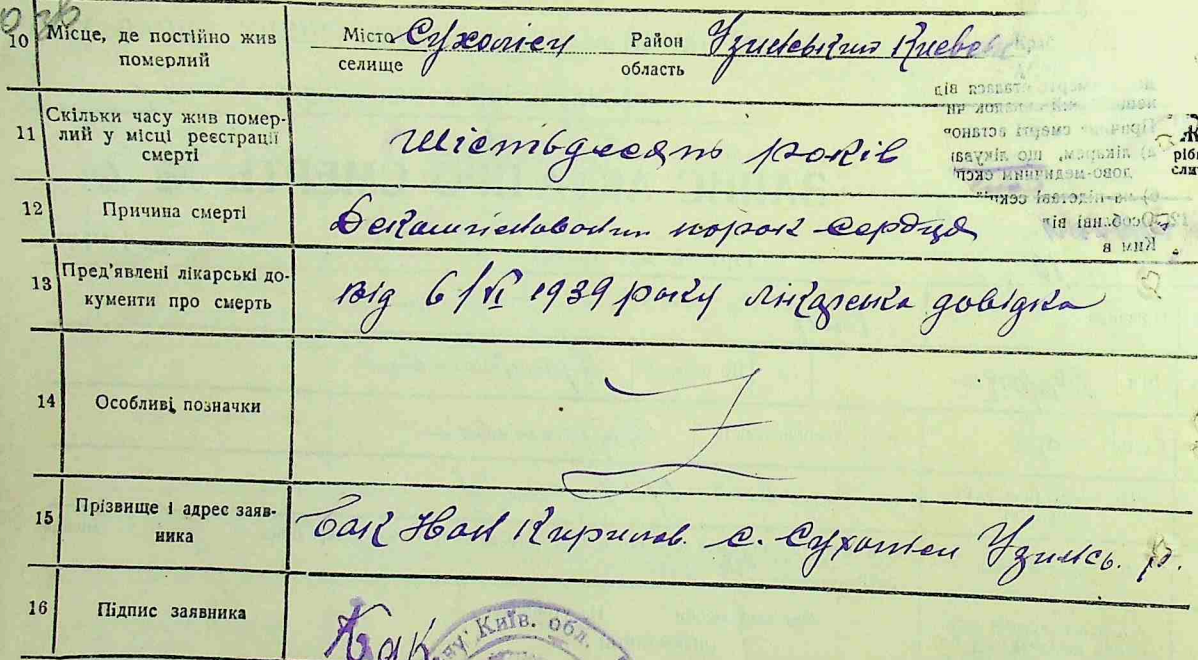 10 Місце, де постійно жив померлий Місто селище Сухоліси Район область Узинський Киевск
11 Скільки часу жив помер-
лий у місці реєстрації
смерті
Шістьдесять років
12 Причина смерті
Декомпінсвований порок сердця
13 Пред'явлені лікарські до-
кументи про смерть
від 6/VI 1939 року лікарська довідка
14 Особливі позначки
Z
15 Прізвище і адрес заяв-
ника
Бак Іван Кирилов. с. Сухоліси Узинсь. р.
16 Підпис заявника
Бак
Київ. обл.